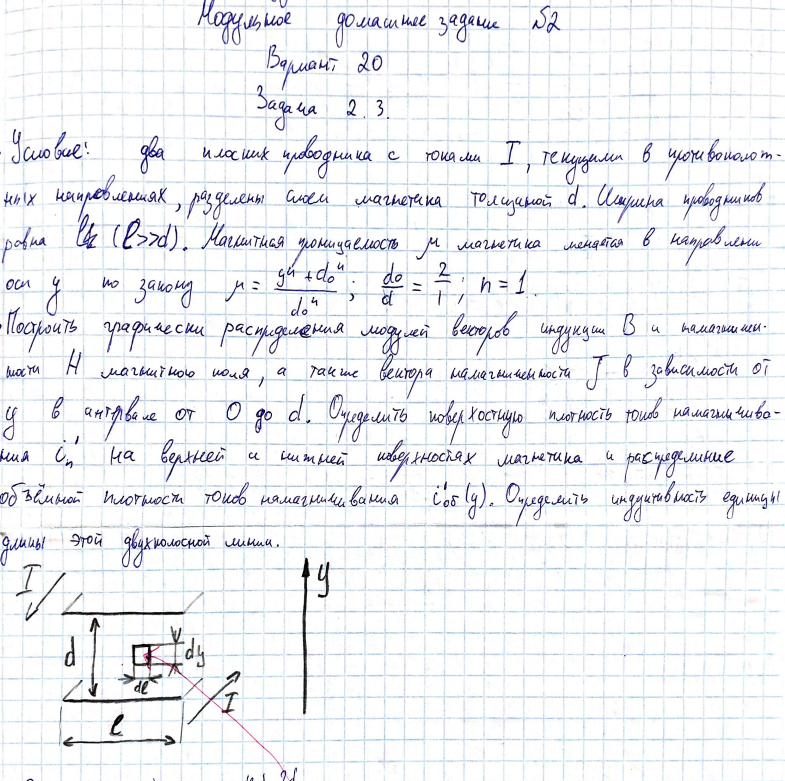 Модульное домашнее задание №2
Вариант 20
Задача 2.3.
Условие: два плоских проводника с токами I, текущими в противополож-
ных направлениях, разделены слоем магнетика толщиной d. Ширина проводников
равна l (l>>d). Магнитная проницаемость μ магнетика меняется в направлени
оси y по закону μ = (yⁿ + d₀ⁿ)/d₀ⁿ ; d₀/d = 2/1 ; n = 1.
Построить графически распределения модулей векторов индукции B и намагничен-
ности H магнитного поля, а также вектора намагниченности J в зависимости от
y в интервале от 0 до d. Определить поверхостную плотность токов намагничива-
ния i'ₙ на верхней и нижней поверхностях магнетика и распределиние
объёмной плотности токов намагничивания i'об (y). Определить индуктивность единицы
длины этой двухполосной линии.
I
y
d
dy
dl
I
l